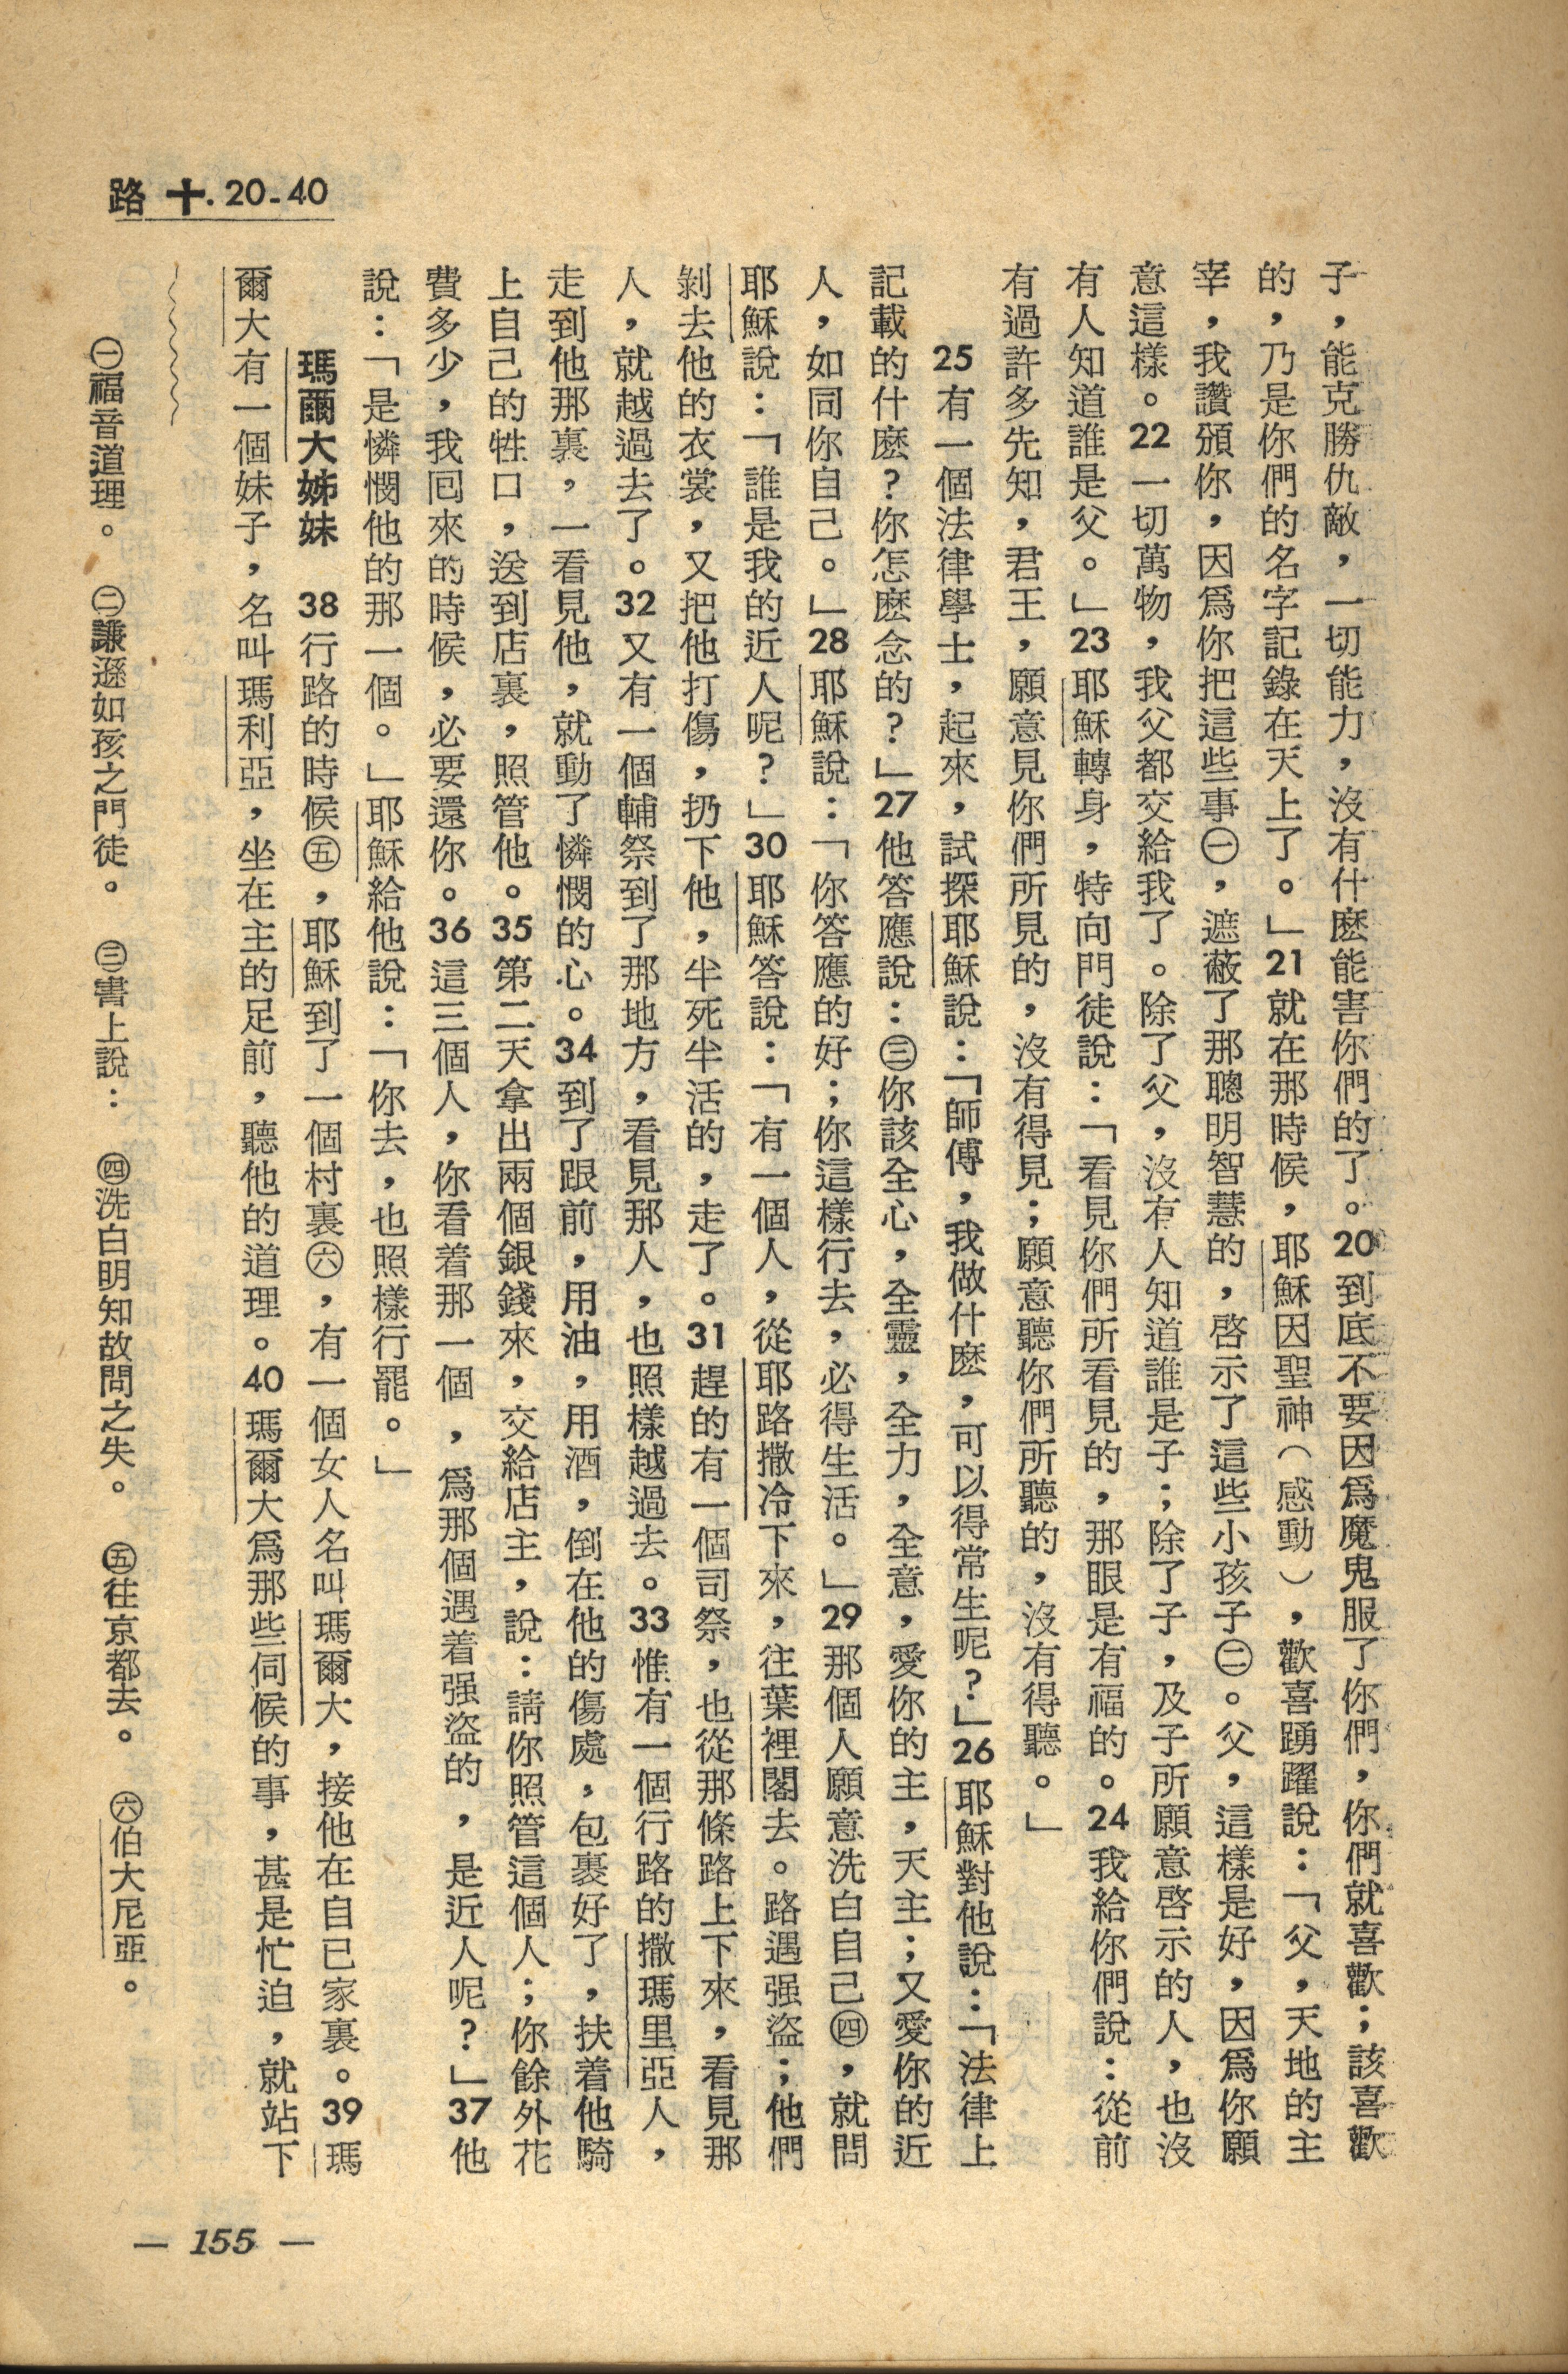 路十. 20-40
子，能克勝仇敵，一切能力，沒有什麽能害你們的了。20到底不要因爲魔鬼服了你們，你們就喜歡；該喜歡
的，乃是你們的名字記錄在天上了。」21就在那時候，耶穌因聖神（感動），歡喜踴躍說：「父，天地的主
宰，我讚頒你，因爲你把這些事㊀，遮蔽了那聰明智慧的，啓示了這些小孩子㊁。父，這樣是好，因爲你願
意這樣。22一切萬物，我父都交給我了。除了父，沒有人知道誰是子；除了子，及子所願意啓示的人，也沒
有人知道誰是父。」23耶穌轉身，特向門徒說：「看見你們所看見的，那眼是有福的。24我給你們說：從前
有過許多先知，君王，願意見你們所見的，沒有得見；願意聽你們所聽的，沒有得聽。」
25有一個法律學士，起來，試探耶穌說：「師傅，我做什麽，可以得常生呢？」26耶穌對他說：「法律上
記載的什麽？你怎麽念的？」27他答應說：㊂你該全心，全靈，全力，全意，愛你的主，天主；又愛你的近
人，如同你自己。」28耶穌說：「你答應的好；你這樣行去，必得生活。」29那個人願意洗白自己㊃，就問
耶穌說：「誰是我的近人呢？」30耶穌答說：「有一個人，從耶路撒冷下來，往葉裡閣去。路遇强盜；他們
剝去他的衣裳，又把他打傷，扔下他，半死半活的，走了。31趕的有一個司祭，也從那條路上下來，看見那
人，就越過去了。32又有一個輔祭到了那地方，看見那人，也照樣越過去。33惟有一個行路的撒瑪里亞人，
走到他那裏，一看見他，就動了憐憫的心。34到了跟前，用油，用酒，倒在他的傷處，包裹好了，扶着他騎
上自己的牲口，送到店裏，照管他。35第二天拿出兩個銀錢來，交給店主，說：請你照管這個人；你餘外花
費多少，我回來的時候，必要還你。36這三個人，你看着那一個，爲那個遇着强盜的，是近人呢？」37他
說：「是憐憫他的那一個。」耶穌給他說：「你去，也照樣行罷。」
瑪爾大姊妹 38行路的時候㊄，耶穌到了一個村裏㊅，有一個女人名叫瑪爾大，接他在自已家裏。39瑪
爾大有一個妹子，名叫瑪利亞，坐在主的足前，聽他的道理。40瑪爾大爲那些伺候的事，甚是忙迫，就站下
㊀福音道理。 ㊁謙遜如孩之門徒。 ㊂書上說： ㊃洗白明知故問之失。 ㊄往京都去。 ㊅伯大尼亞。
— 155 —